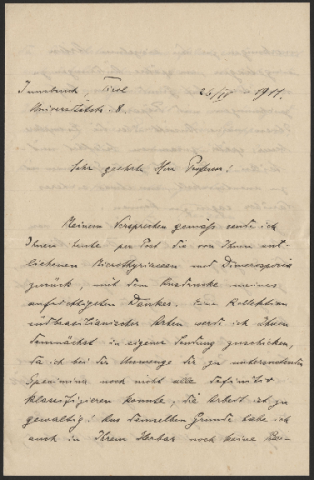 Innsbruck, Tirol 26/IV 1911.
Universitätstr. 8
Sehr geehrter Herr Professor!
Meinem Versprechen gemäss sende ich
Ihnen heute per Post die von Ihnen ent-
liehenen Microthyriaceen und Dimerosporien
zurück, mit dem Ausdrucke meines
aufrichtigsten Dankes. Eine Kollektion
südbrasilianischer Arten werde ich Ihnen
demnächst in eigener Sendung zuschicken,
da ich bei der Unmenge der zu untersuchenden
Specimina noch nicht alle definitiv
klassifizieren konnte, die Arbeit ist zu
gewaltig! Aus demselben Grunde habe ich
auch in Ihrem Herbar noch keine